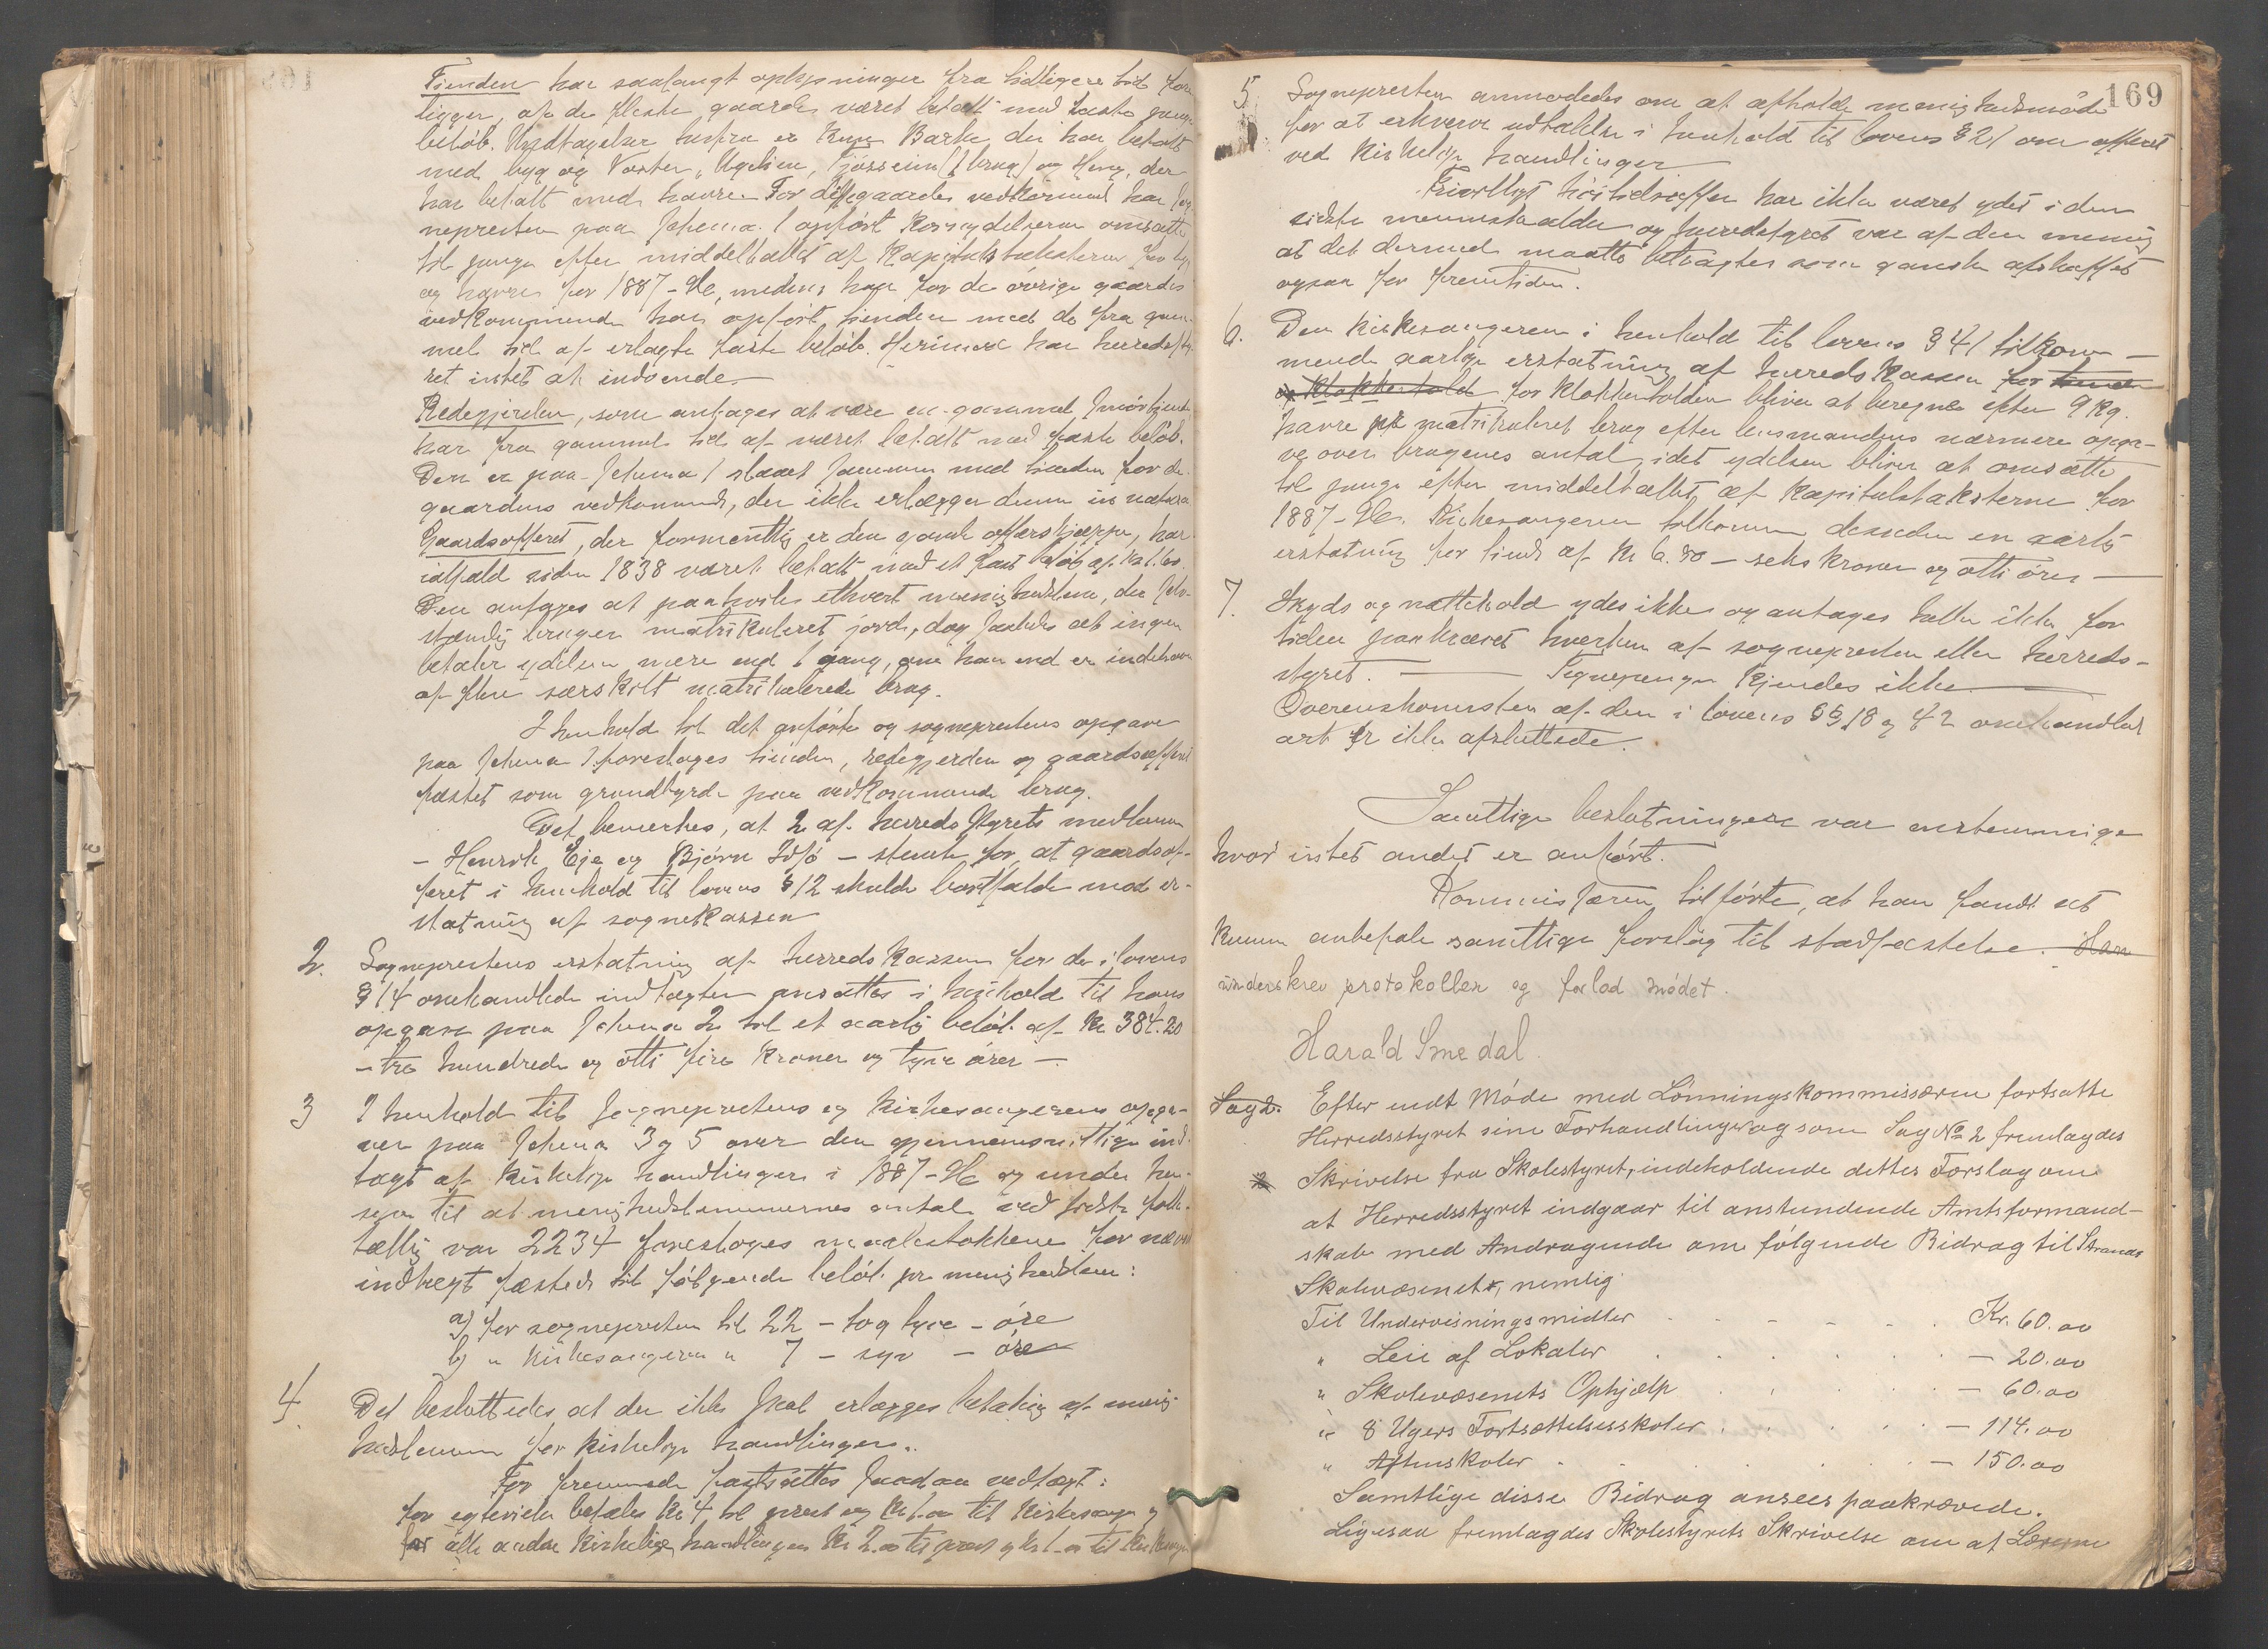 Tienden har saalangt oplysninger fra tidligere tid fore
ligger, af de fleste gaarde været betalt med faste penge
beløb. Undtagelser herfra er Barke der har betalt
med byg og Vorter, Ugelsen, Tjøsseim (1 brug) og Heng, der
har betalt med havre. For disse gaardes vedkommend har sog
nepresten paa schema 1 opført kornydelserne omsatte
til penge efter middeltallet af kapitelstaksterne for byg
og havre for 1887-96, medens han for de øvrige gaardes
vedkommende har opført tienden med de fra gam-
mel tid af erlagte faste beløb. Herimod har herredsty
ret intet at indvende.
Redegjerden, som antages at være en gammel smørtiende
har fra gammel tid af været betalt med faste beløb.
Den er paa schema 1 slaaet sammen med tienden for de
gaardes vedkommende, der ikke erlægger denne in natura
Gaardsofferet, der formentlig er den gamle offerskjæppe, har
ialfald siden 1838 været betalt med et fast beløb af kr. 1.60.
Den antages at paahvile ethvert menighedslem, der selv-
stændig bruger matrikuleret jord, dog saaledes at ingen
betaler ydelsen mere end 1 gang, om han end er indehaver
af flere særskilt matrikulerede brug.
I henhold til det anførte og sogneprestens opgave
paa schema 1 foreslages tienden, redegjerden og gaardsofferet
fæstet som grundbyrde paa vedkommende brug.
Det bemerkes, at 2 af herredsstyrets medlemmer
- Henrik Eje og Bjørn Idsø - stemte for at gaardsof-
feret i henhold til lovens § 12 skulde bortfalde mod er-
statning af sognekassen
2. Sogneprestens erstatning af herredskassen for de i lovens
§ 14 omhandlede indtægter ansattes i henhold til hans
opgave paa schema 2 til et aarlig beløb af kr 384.20
- tre hundrede og otti fire kroner og tyve ører -
3 I henhold til sogneprestens og kirkesangerens opga-
ver paa schema 3 og 5 over den gjennemsnitlige ind-
tægt af kirkelige handlinger i 1887-96 og under hen-
syn til at menighedslemmernes antal ved sidste folke-
tælling var 2234 foreslages maalestokken for nævnte
indtægt fæsted til følgende beløb pr menighedslem:
a) for sognepresten til 22 - to og tyve - øre
b) " kirkesangeren " 7 - syv - øre
4. Det besluttedes at der ikke skal erlægges betaling af menig
hedslemmer for kirkelige handlinger.
For fremmede fastsættes saadan vedtægt:
for egtevielse betales kr 4 til prest og kr 1.00 til kirkesanger og
for alle andre kirkelige handlinger kr 2.00 til prest og kr 1.00 til kirkesanger
169
5. Sognepresten anmodedes om at afholde menighedsmøde
for at erhverve udtalelse i henhold til lovens § 21 om offeret
ved kirkelige handlinger
Frivilligt høitidsoffer har ikke været ydet i den
sidste menneskealder og herredstyret var af den mening
at det dermed maatte betragtes som ganske afskaffet
ogsaa for fremtiden.
6. Den kirkesangeren i henhold til lovens § 41 tilkom-
mende aarlige erstatning af herredskassen for
og klokkertold for klokkertolden bliver at beregne efter 9 kg.
havre pr matrikuleret brug efter lensmandens nærmere opga-
ve over brugenes antal, idet ydelsen bliver at omsætte
til penge efter middeltallet af kapitelstaksterne for
1887-96. Kirkesangeren tilkommer desuden en aarlig
erstatning for tiende af kr 6.80 - seks kroner og otti ører -
7. Skyds og nattehold ydes ikke og antages heller ikke for
tiden paakrævet hverken af sognepresten eller herreds-
styret. — Tegnepenge kjendes ikke —
Overenskomster af den i lovens §§ 18 og 42 omhandlede
art er ikke afsluttede.
Samtlige beslutninger var enstemmige
hvor intet andet er anført.
Kommissæren tilførte, at han fandt at
kunne anbefale samtlige forslag til stadfæstelse. Han
underskrev protokollen og forlod mødet.
Harald Smedal.
Sag 2. Efter endt Møde med Lønningskommissæren fortsatte
Herredsstyret sine Forhandlinger og som Sag No 2 fremlagdes
Skrivelse fra Skolestyret, indeholdende dettes Forslag om
at Herredsstyret indgaar til anstundende Amtsformand-
skab med Andragende om følgende Bidrag til Strands
Skolevæsenet, nemlig
Til Undervisningsmidler . . . . . . Kr. 60.00
" Leie af Lokaler . . . . . — 20.00
" Skolevæsenets Ophjælp . . . . — 60.00
" 8 Ugers Fortsættelsesskoler . . . . — 114.00
" Aftenskoler . . . . . . — 150.00
Samtlige disse Bidrag ansees paakrævede.
Ligesaa fremlagdes Skolestyrets Skrivelse om at Lærerne